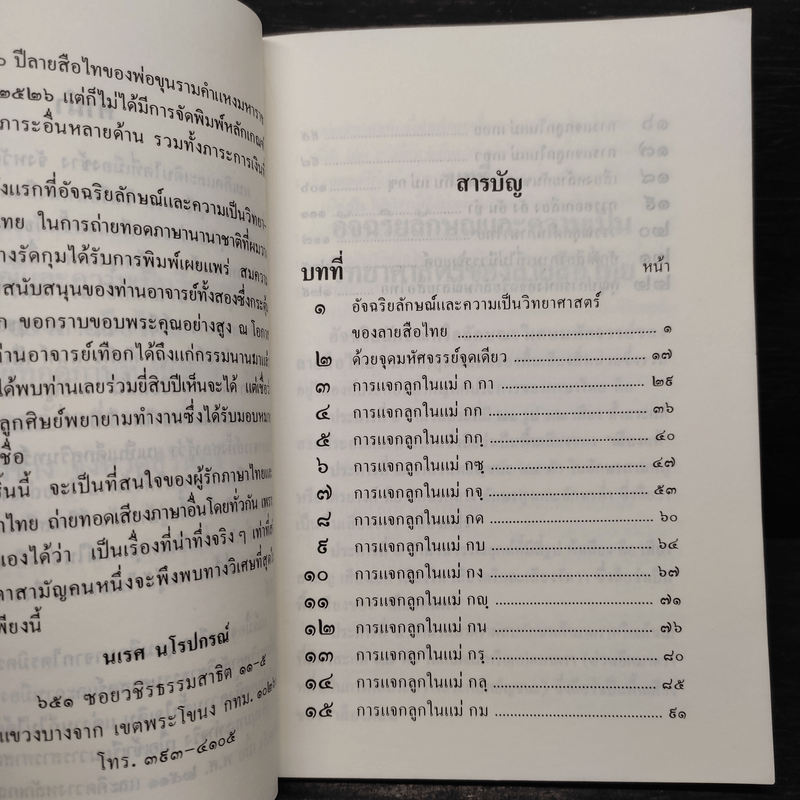 ปีลายสือไทของพ่อขุนรามคำแหงมหาราช
๒๕๒๖ แต่ก็ไม่ได้มีการจัดพิมพ์หลักเกณฑ์
ภาระอื่นหลายด้าน รวมทั้งภาระการเงิน
แรกที่อัจฉริยลักษณ์และความเป็นวิทยา-
ไทย ในการถ่ายทอดภาษานานาชาติที่ผม
างรัดกุมได้รับการพิมพ์เผยแพร่ สม
สนับสนุนของท่านอาจารย์ทั้งสองซึ่ง
ก ขอกราบขอบพระคุณอย่างสูง ณ โอกา
ท่านอาจารย์เทือกได้ถึงแก่กรรมนานมาแล้ว
ได้พบท่านเลยร่วมยี่สิบปีเห็นจะได้ แต่เชื่อว่
ลูกศิษย์พยายามทำงานซึ่งได้รับมอบหมาย
ชื่อ
นี้ จะเป็นที่สนใจของผู้รักภาษาไทยและ
าไทย ถ่ายทอดเสียงภาษาอื่นโดยทั่วกัน เพรา
เองได้ว่า เป็นเรื่องที่น่าทึ่งจริง ๆ เท่าที่
ดาสามัญคนหนึ่งจะพึงพบทางวิเศษที่สุด
พียงนี้
นเรศ นโรปกรณ์
๖๕๑ ซอยวชิรธรรมสาธิต ๑๑-๕
แขวงบางจาก เขตพระโขนง กทม. ๑๐๒๖
โทร. ๓๙๓-๔๑๐๕
สารบัญ
บทที่ หน้า
๑ อัจฉริยลักษณ์และความเป็นวิทยาศาสตร์
ของลายสือไทย ๑
๒ ด้วยจุดมหัศจรรย์จุดเดียว ๑๗
๓ การแจกลูกในแม่ ก กา ๒๙
๔ การแจกลูกในแม่ กก ๓๖
๕ การแจกลูกในแม่ กกฺ ๔๐
๖ การแจกลูกในแม่ กซฺ ๔๗
๗ การแจกลูกในแม่ กจฺ ๕๓
๘ การแจกลูกในแม่ กด ๖๐
๙ การแจกลูกในแม่ กบ ๖๔
๑๐ การแจกลูกในแม่ กง ๖๗
๑๑ การแจกลูกในแม่ กญฺ ๗๑
๑๒ การแจกลูกในแม่ กน ๗๖
๑๓ การแจกลูกในแม่ กรฺ ๘๐
๑๔ การแจกลูกในแม่ กลฺ ๘๕
๑๕ การแจกลูกในแม่ กม ๙๑